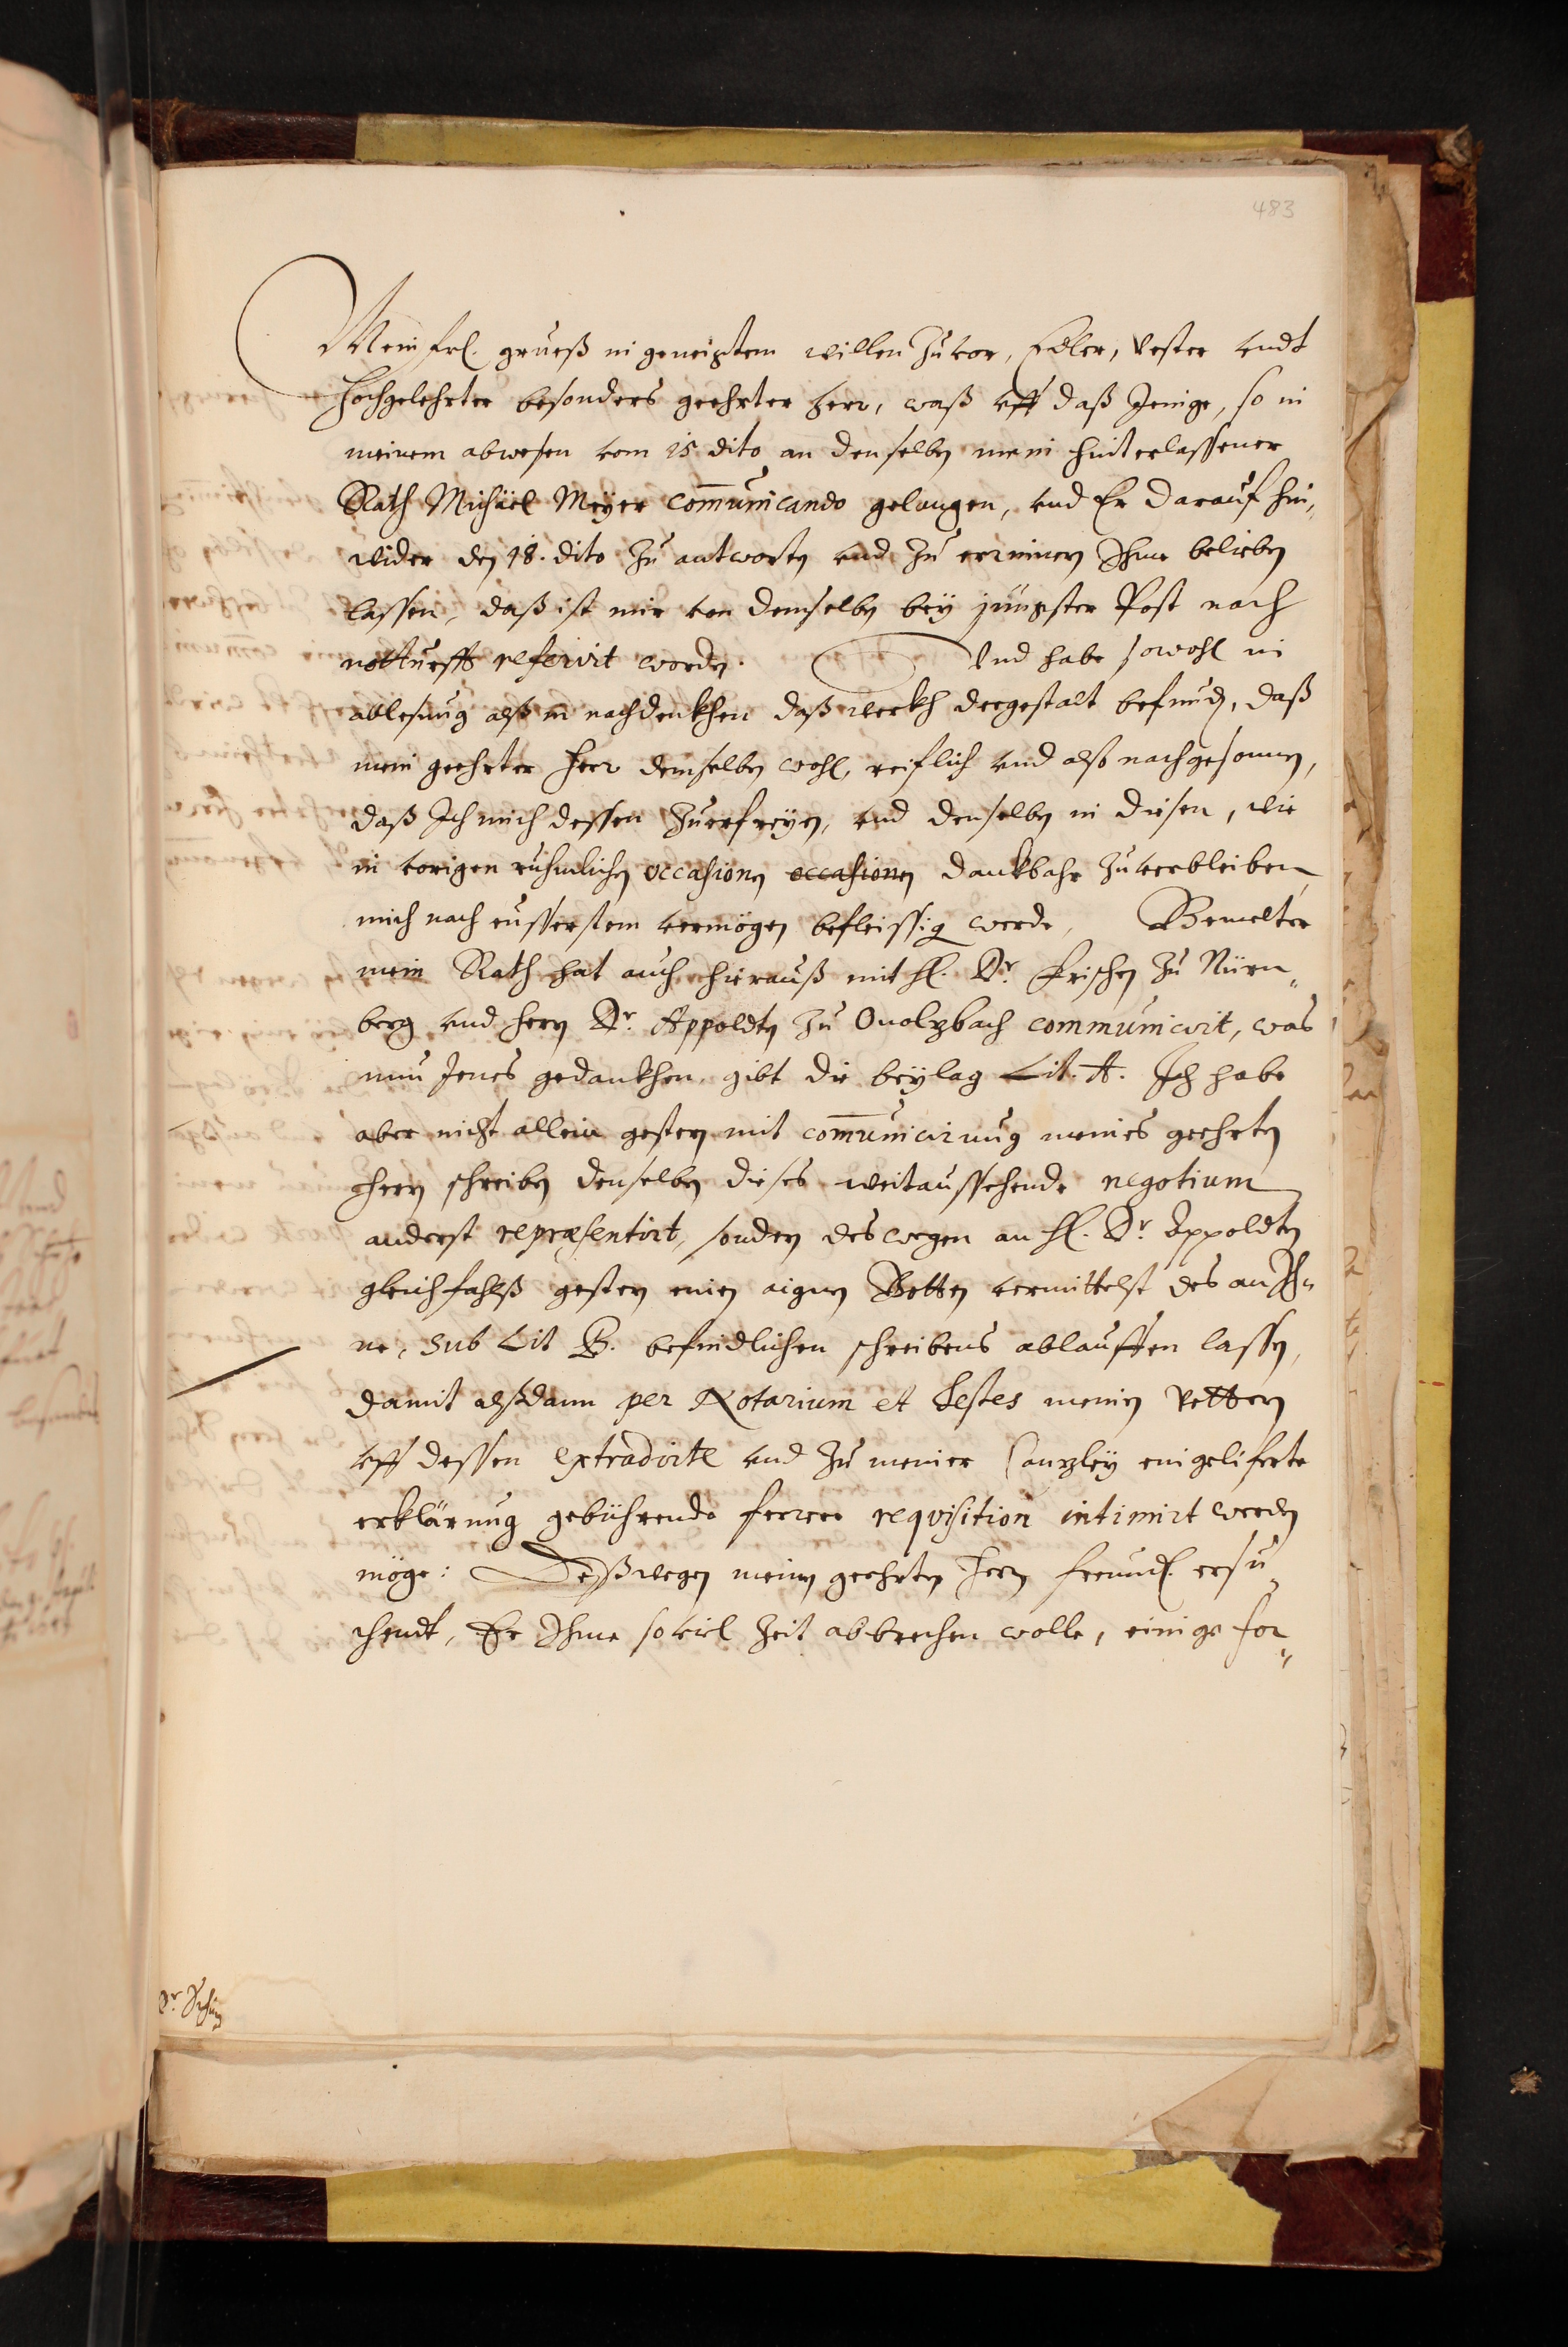 483
Mein frl. grueß in geneigtem willen Zuvor, Edler, Vester vndt
Hochgelehrter besonders geehrter Herr, waß vff daß Jenige, so in
meinem abwesen vom 15 dito an denselben mein hinterlassener
Rath Michäel Meyer com̄unicando gelangen, vnd Er darauf hin„
wider den 18. dito Zu antworten vnd Zu erinnern Ihme belieben
lassen, daß ist mir von demselben bey jüngster Post nach
notturfft referirt worden. Vnd habe sowohl in
ablesung alß in nachdenkhen daß werkh dergestalt befunden, daß
mein geehrter Herr demselben wohl, reiflich vnd also nachgesonnen,
daß Ich mich dessen Zuerfreyen, vnd denselben in diesen, wie
in vorigen rühmlichen occasionen occasionen dankbahr Zuverbleiben
mich nach eusserstem vermögen befleissig werde, Bemelter
mein Rath hat auch hierauß mit H. Dr. Frischen Zu Nürn„
berg vnd Herrn Dr. Appoldten Zu Onolzbach communicirt, was
nun Jenes gedankhen, gibt die beylag Lit. A. Ich habe
aber nicht allein gestern mit com̄unicirung meines geehrten
Herrn schreiben denselben dieses weitaussehende negotium
anderst repræsentirt, sondern deswegen an H. Dr Appoldten
gleichfahlß gestern einen aignen Botten vermittelst des an Ih„
ne, sub Lit B. befindlichen schreibens ablauffen lassen,
damit alßdann per Notarium et Testes meinen Vettern
vff dessen extradirte vnd Zu meiner Canzley eingeliferte
erklärung gebührende ferrere reqvisition intimirt werden
möge: Deßwegen meinen geehrten Herrn freundl. ersu„
chendt, Er Ihme soviel Zeit abbrechen wolle, einige for„